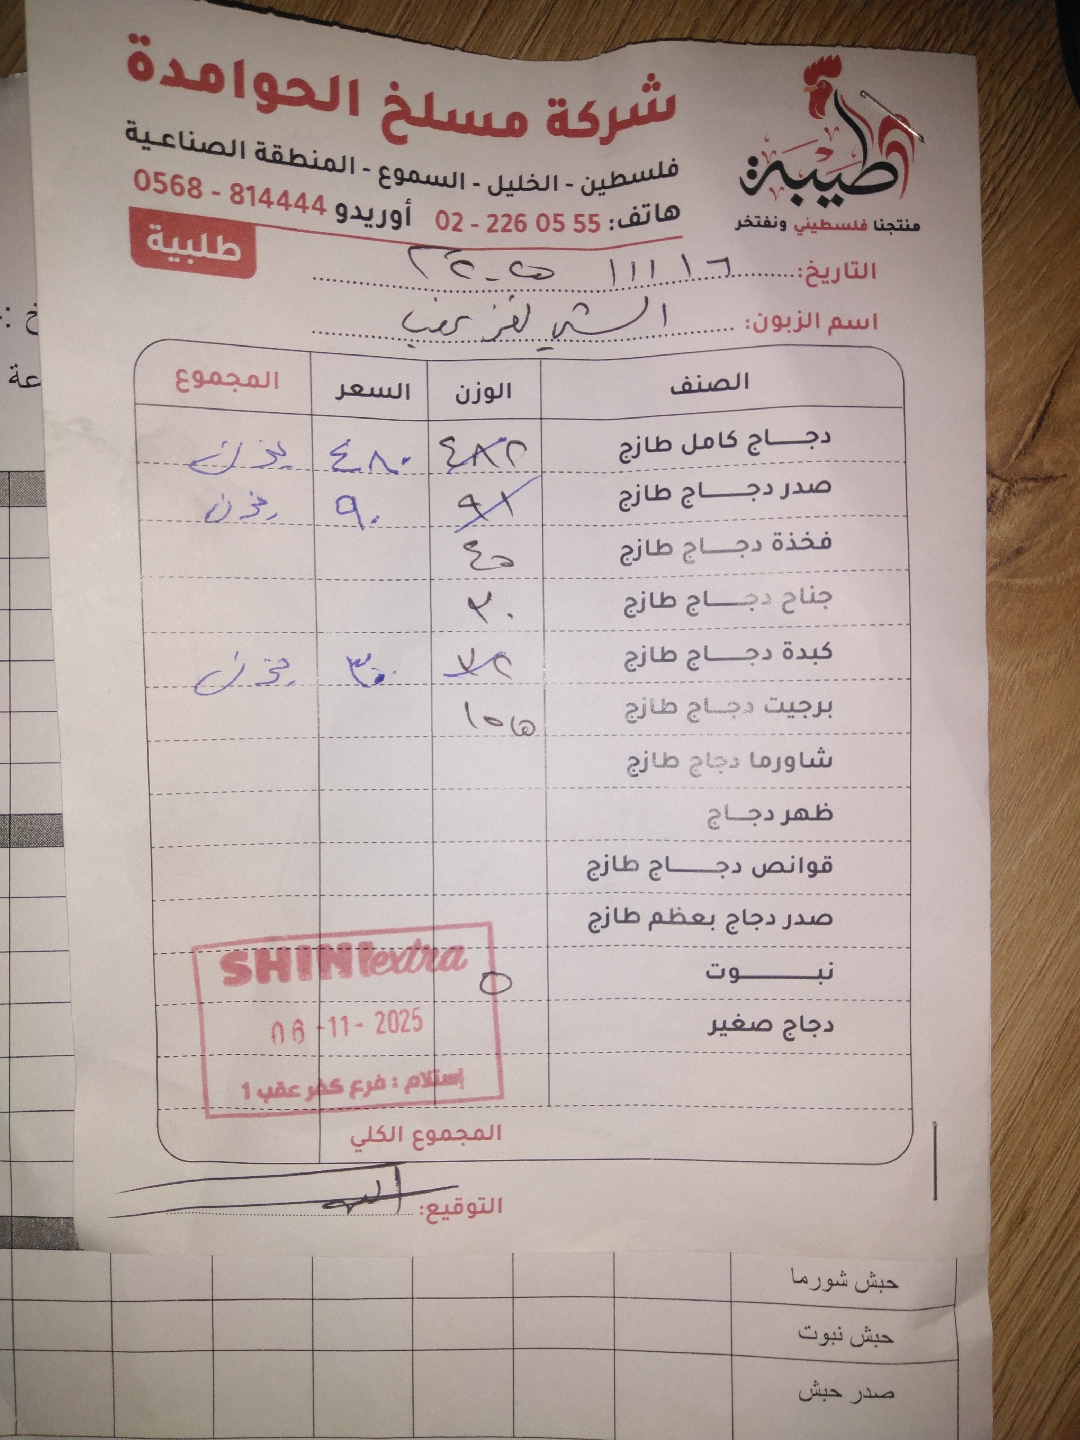 شركة مسلخ الحوامدة
فلسطين - الخليل - السموع - المنطقة الصناعية
هاتف: 02 - 226 05 55 أوريدو 0568 - 814444
طيبة
منتجنا فلسطيني ونفتخر
طلبية
التاريخ:
اسم الزبون:
الصنف الوزن السعر المجموع
دجاج كامل طازج ٤٨٢ ٤٨٠
صدر دجاج طازج ٩١ ٩٠
فخذة دجاج طازج ٤٥
جناح دجاج طازج ٣٠
كبدة دجاج طازج ٧٢
برجيت دجاج طازج
شاورما دجاج طازج
ظهر دجاج
قوانص دجاج طازج
صدر دجاج بعظم طازج
نبوت ٥
دجاج صغير
SHINI extra
06-11-2025
إستلام : فرع كفر عقب 1
المجموع الكلي
التوقيع:
حبش شورما
حبش نبوت
صدر حبش